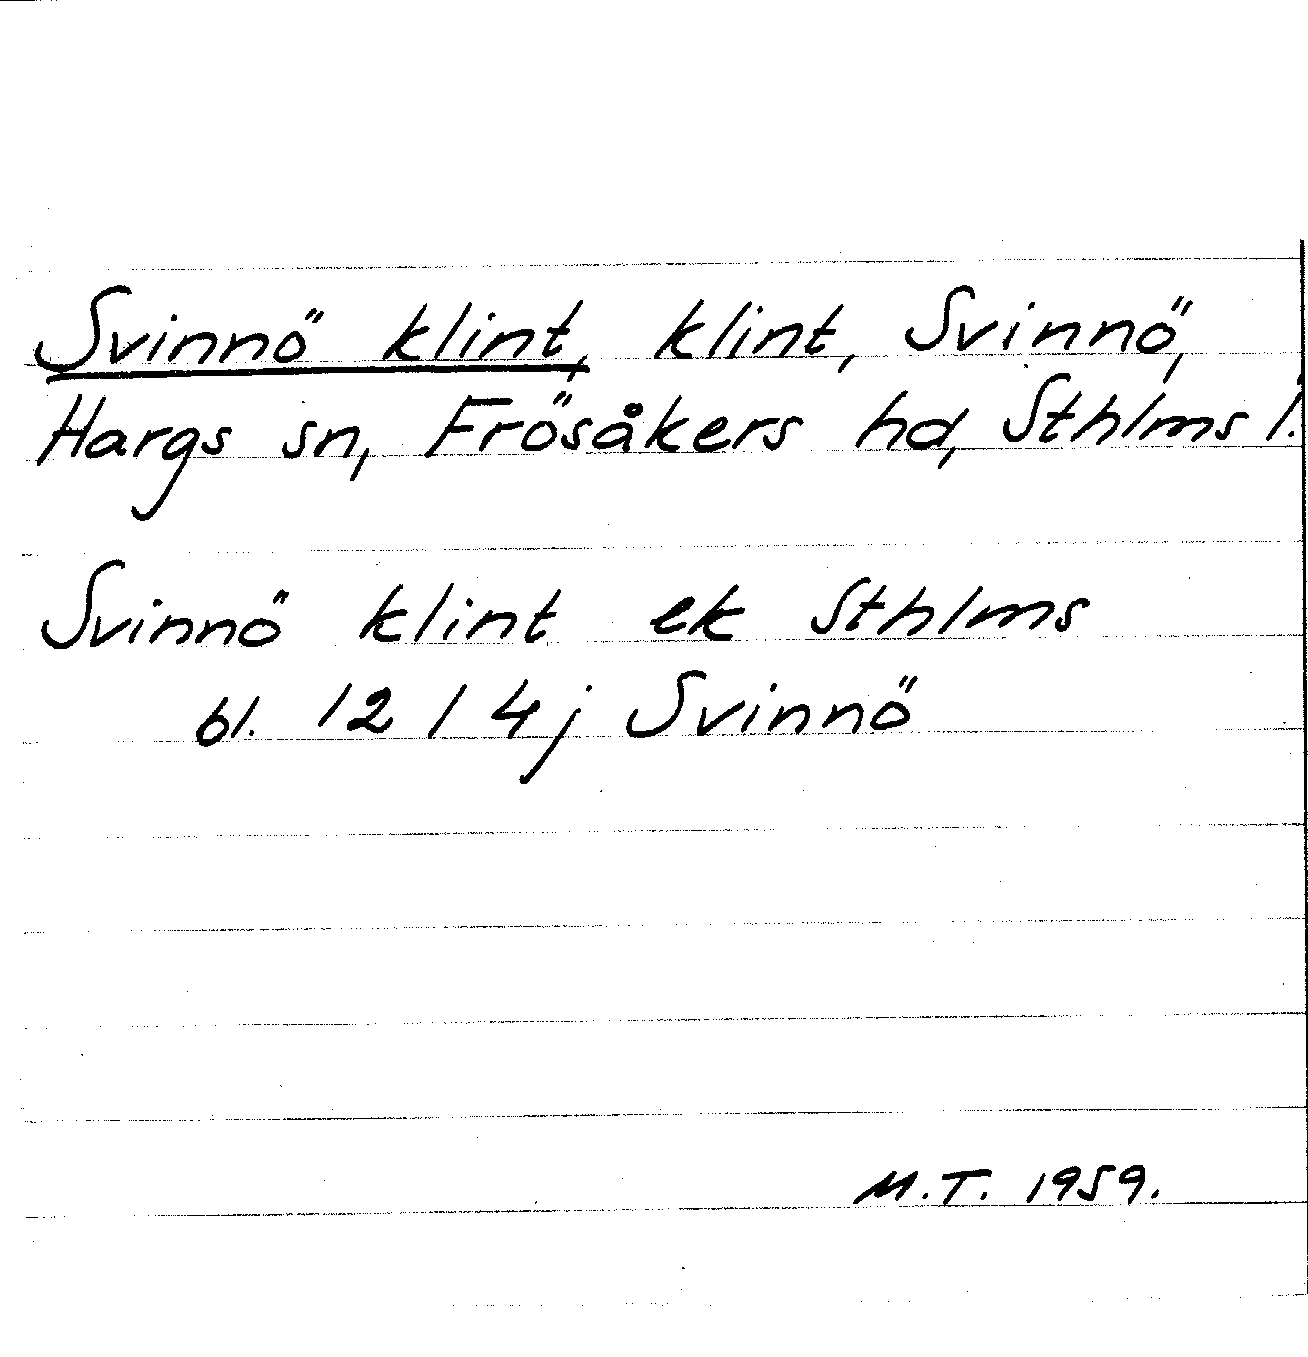 Svinnö klint, klint, Svinnö,
Hargs sn, Frösåkers hd, Sthlms l.
Svinnö klint ek Sthlms
bl. 12 I 4j Svinnö
M.T. 1959.